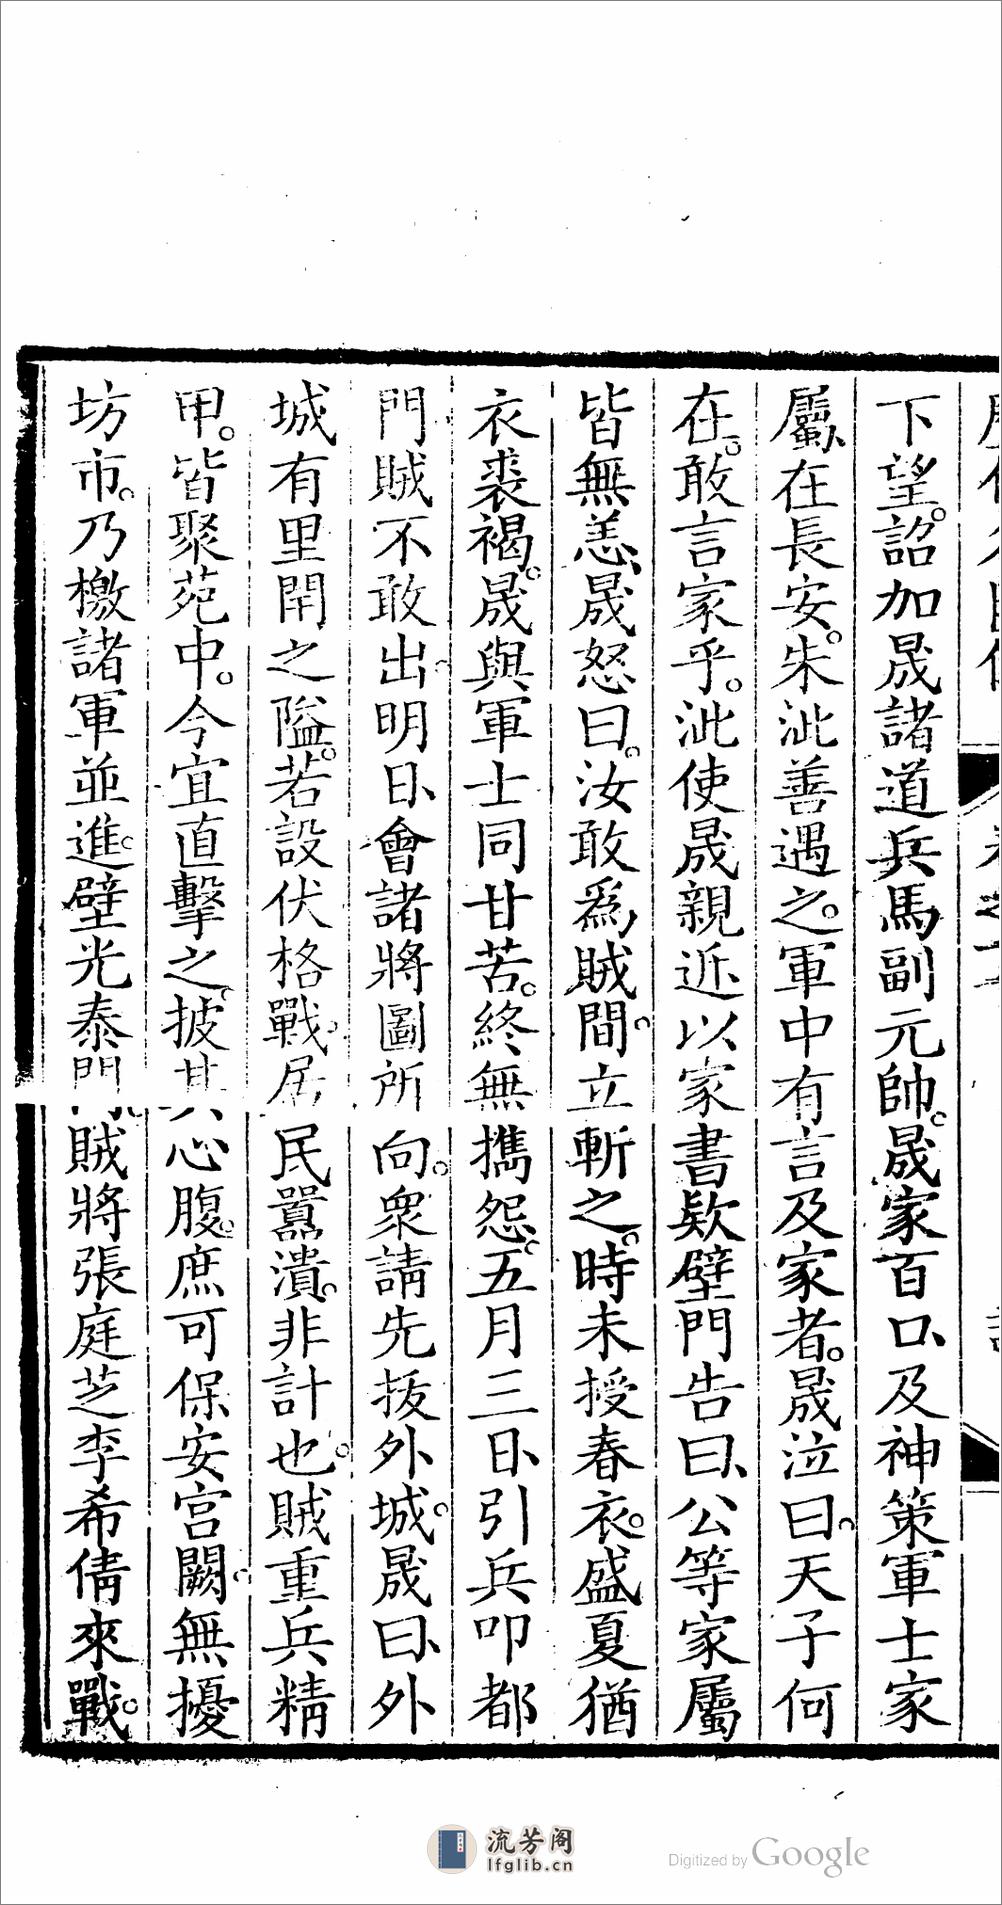 下望。詔加晟諸道兵馬副元帥。晟家百口、及神策軍士家
屬、在長安。朱泚善遇之。軍中有言及家者。晟泣曰。天子何
在。敢言家乎。泚使晟親近以家書欵壁門告曰、公等家屬
皆無恙、晟怒曰。汝敢爲賊間。立斬之。時未授春衣。盛夏猶
衣裘褐。晟與軍士同甘苦。終無攜怨。五月三日、引兵叩都
門賊不敢出。明日、會諸將圖所向。衆請先拔外城。晟曰、外
城有里閈之隘。若設伏格戰。居民囂潰。非計也。賊重兵精
甲。皆聚苑中。今宜直擊之。披其心腹。庶可保安宮闕。無擾
坊市。乃檄諸軍並進。壁光泰門。賊將張庭芝李希倩來戰。
流芳阁
lfglib.cn
Digitized by Google